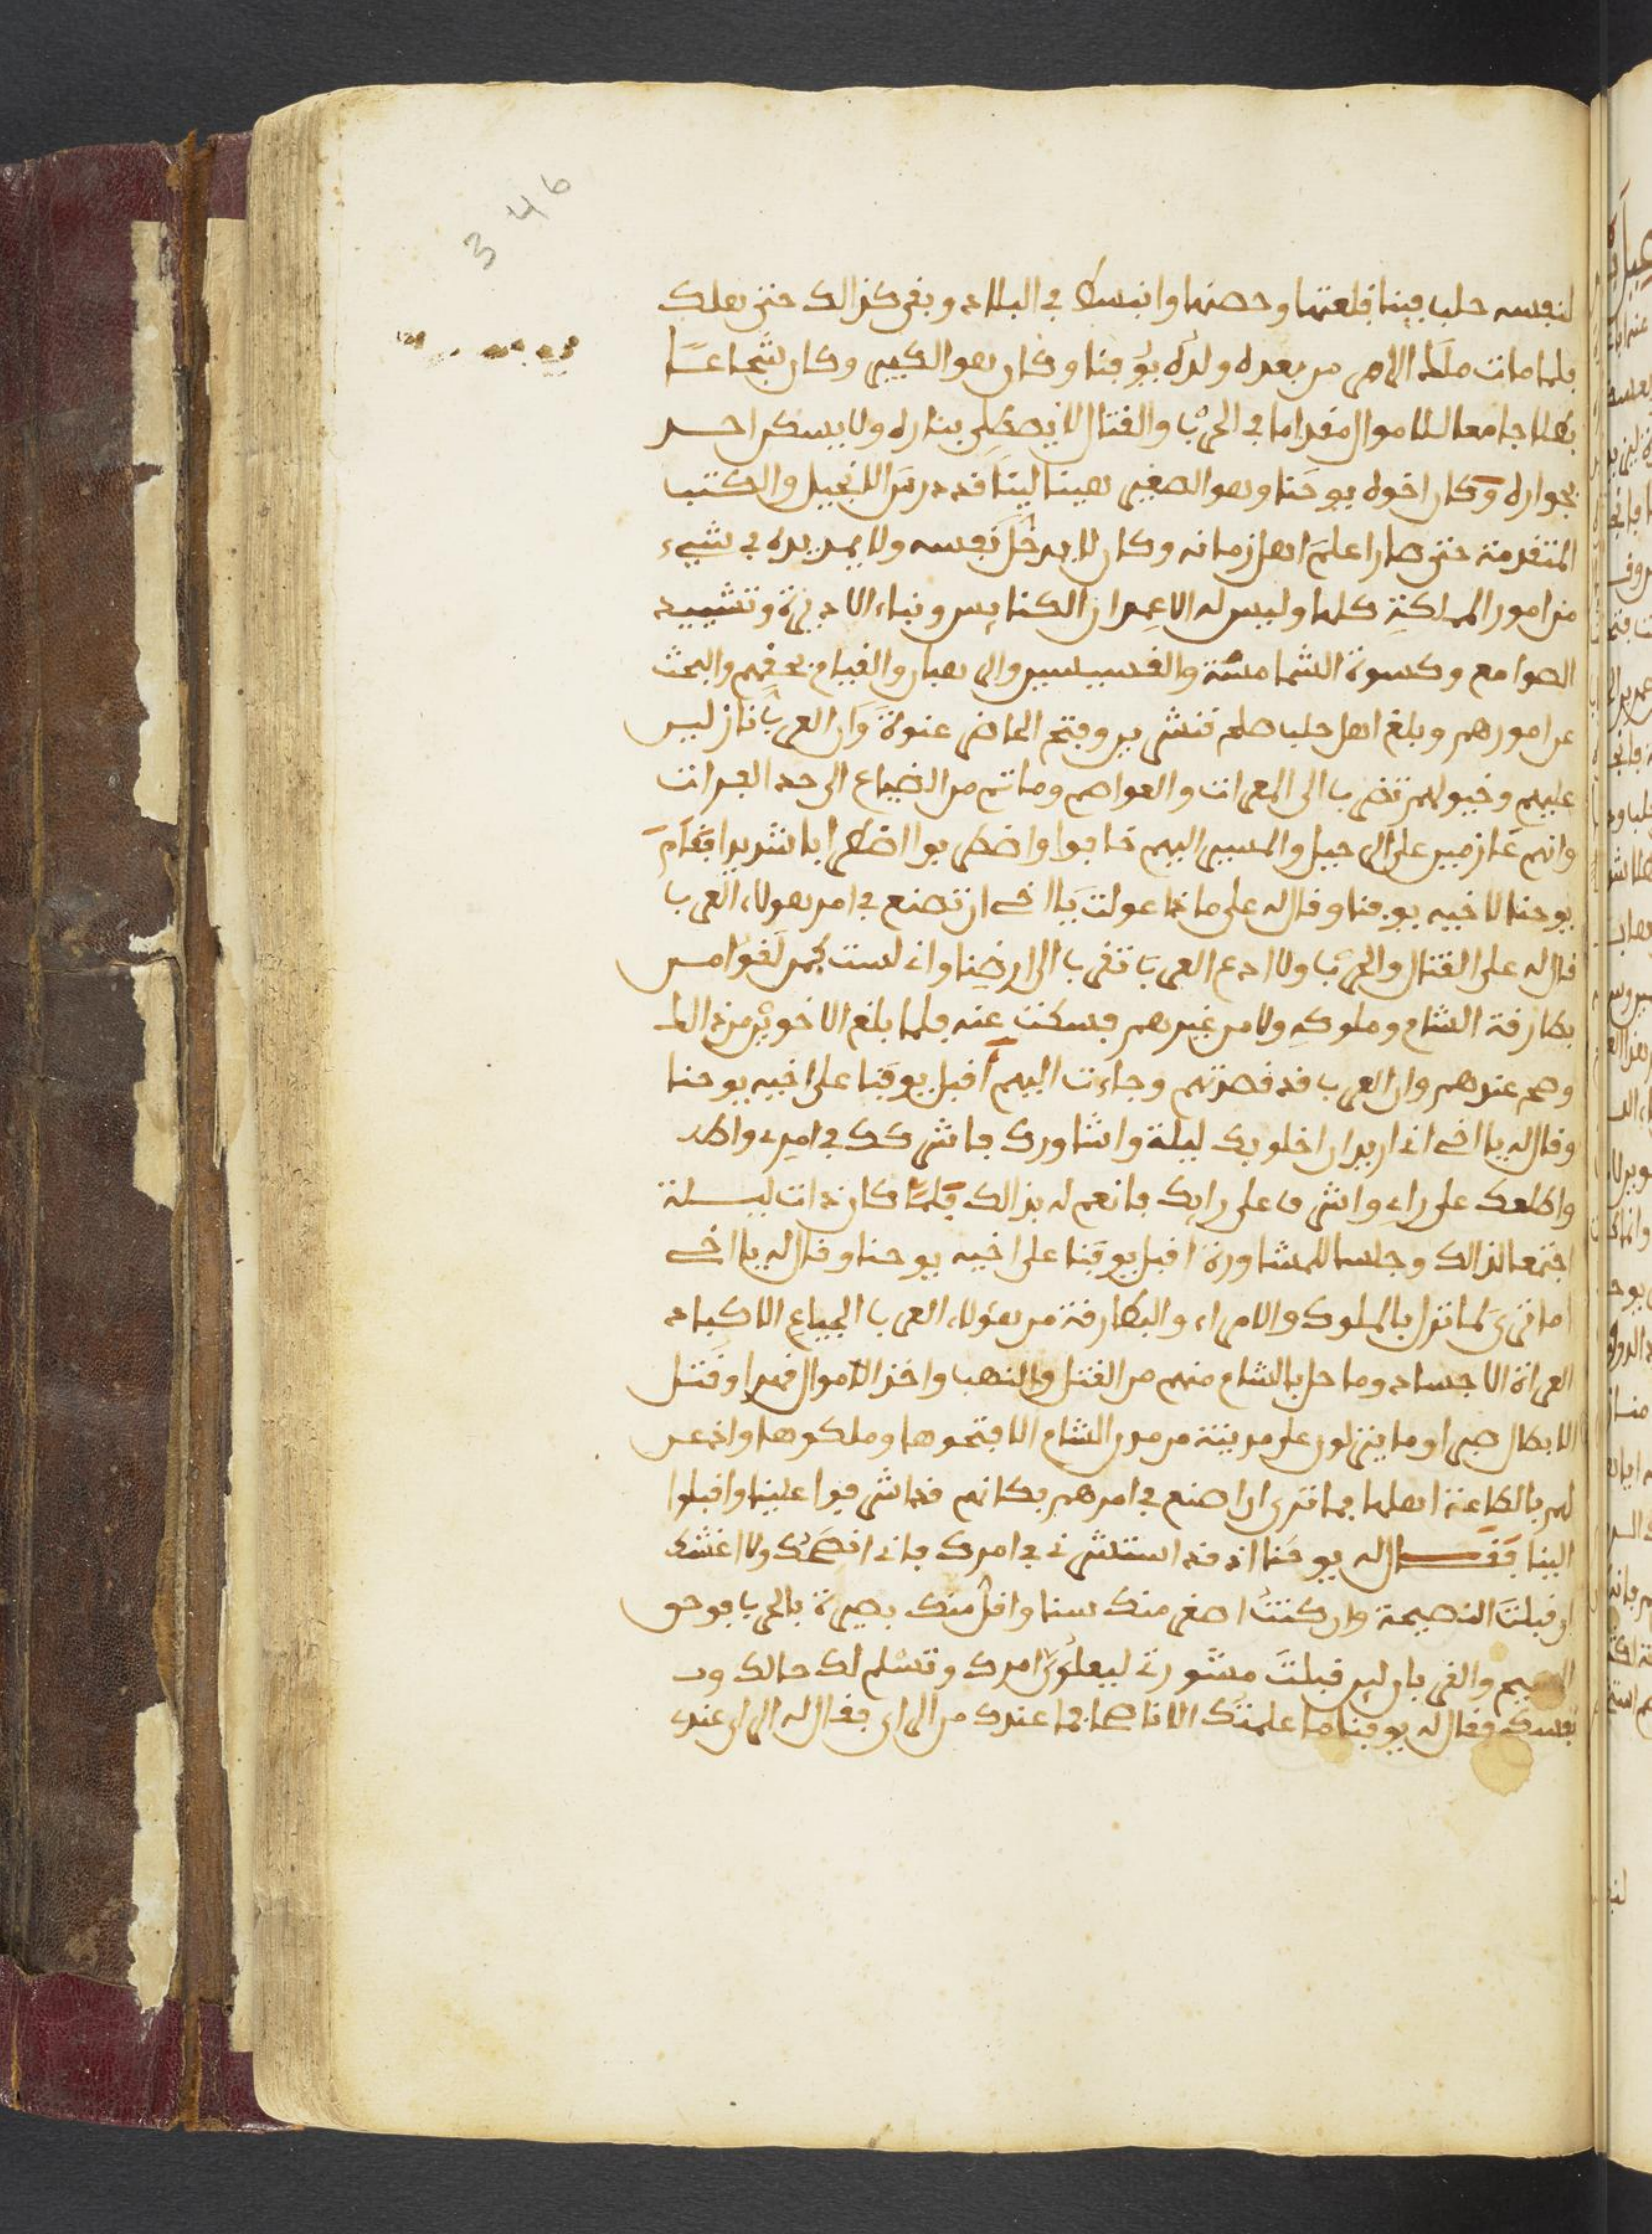 346
لنفسه حلب فبنا قلعتها وحصنها وانبسط في البلاد وبقى كذالك حتى هلك
فلما مات ملك الامر من بعده ولده يوقنا وكان هو الكبير وكان شجاعا
بطلا جامعا للاموال مقداما في الحرب والقتال لا يصطلى بناره ولا يسكن احد
بجواره وكان اخوه يوحنا وهو الصغير هينا لينا قد درس الانجيل والكتب
المتقدمة حتى صار اعلم اهل زمانه وكان لا يدخل نفسه ولا يمد يده في شيء
من امور المملكة كلها وليس له الا عمران الكنايس وبناء الاديرة وتشييد
الصوامع وكسوة الشمامسة والقسيسين والرهبان والقيام بحقهم والبحث
عن امورهم وبلغ اهل حلب صلح قنشرين وفتح الحاضر عنوة وان العرب نازلين
عليهم وخيولهم تضرب الى المعرات والعواصم وما تم من الضياع الى حد الفرات
وانهم عازمين على الرحيل والمسير اليهم خافوا واضطربوا اضطرابا شديدا فقام
يوحنا لاخيه يوقنا وقال له على ماذا عولت يا اخي ان تصنع في امر هولاء العرب
قال له على القتال والحرب ولا ادع العرب تقرب الى ارضنا واني لست كمن لقوا من
بطارقة الشام وملوكه ولا من غيرهم فسكت عنه فلما بلغ الاخوين من ذالك
وصح عندهم وان العرب قد قصدتهم وجاءت اليهم اقبل يوقنا على اخيه يوحنا
وقال له يا اخي اني اريد ان اخلو بك ليلة واشاورك فاشركك في امري واطلـ
واطلعك على راي واشرف على رايك فانعم له بذالك فلما كان ذات ليلة
اجتمعا لذالك وجلسا للمشاورة اقبل يوقنا على اخيه يوحنا وقال له يا اخي
اما ترى لما نزل بالملوك والامراء والبطارقة من هولاء العرب الجياع الاكباد
العراة الاجساد وما حل بالشام منهم من القتل والنهب واخذ الاموال قهرا وقتل
الابطال صبرا وما ينزلون على مدينة من مدن الشام الا فتحوها وملكوها واذعن
لهم بالطاعة اهلها فما ترى ان اصنع في امرهم فكانهم قد اشرفوا علينا واقبلوا
الينا فقال له يوحنا اذ قد استشرتني في امرك فاني انصحك ولا اغشك
ان قبلت النصيحة وان كنت اصغر منك سنا واقل منك بصيرة بالحرب فوحق
المسيح والقربان لين قبلت مشورتي ليعلون امرك وتسلم لك حالك و
نفسك فقال له يوقنا ما علمتك الا ناصحا فما عندك من الراي فقال له الراي عندي